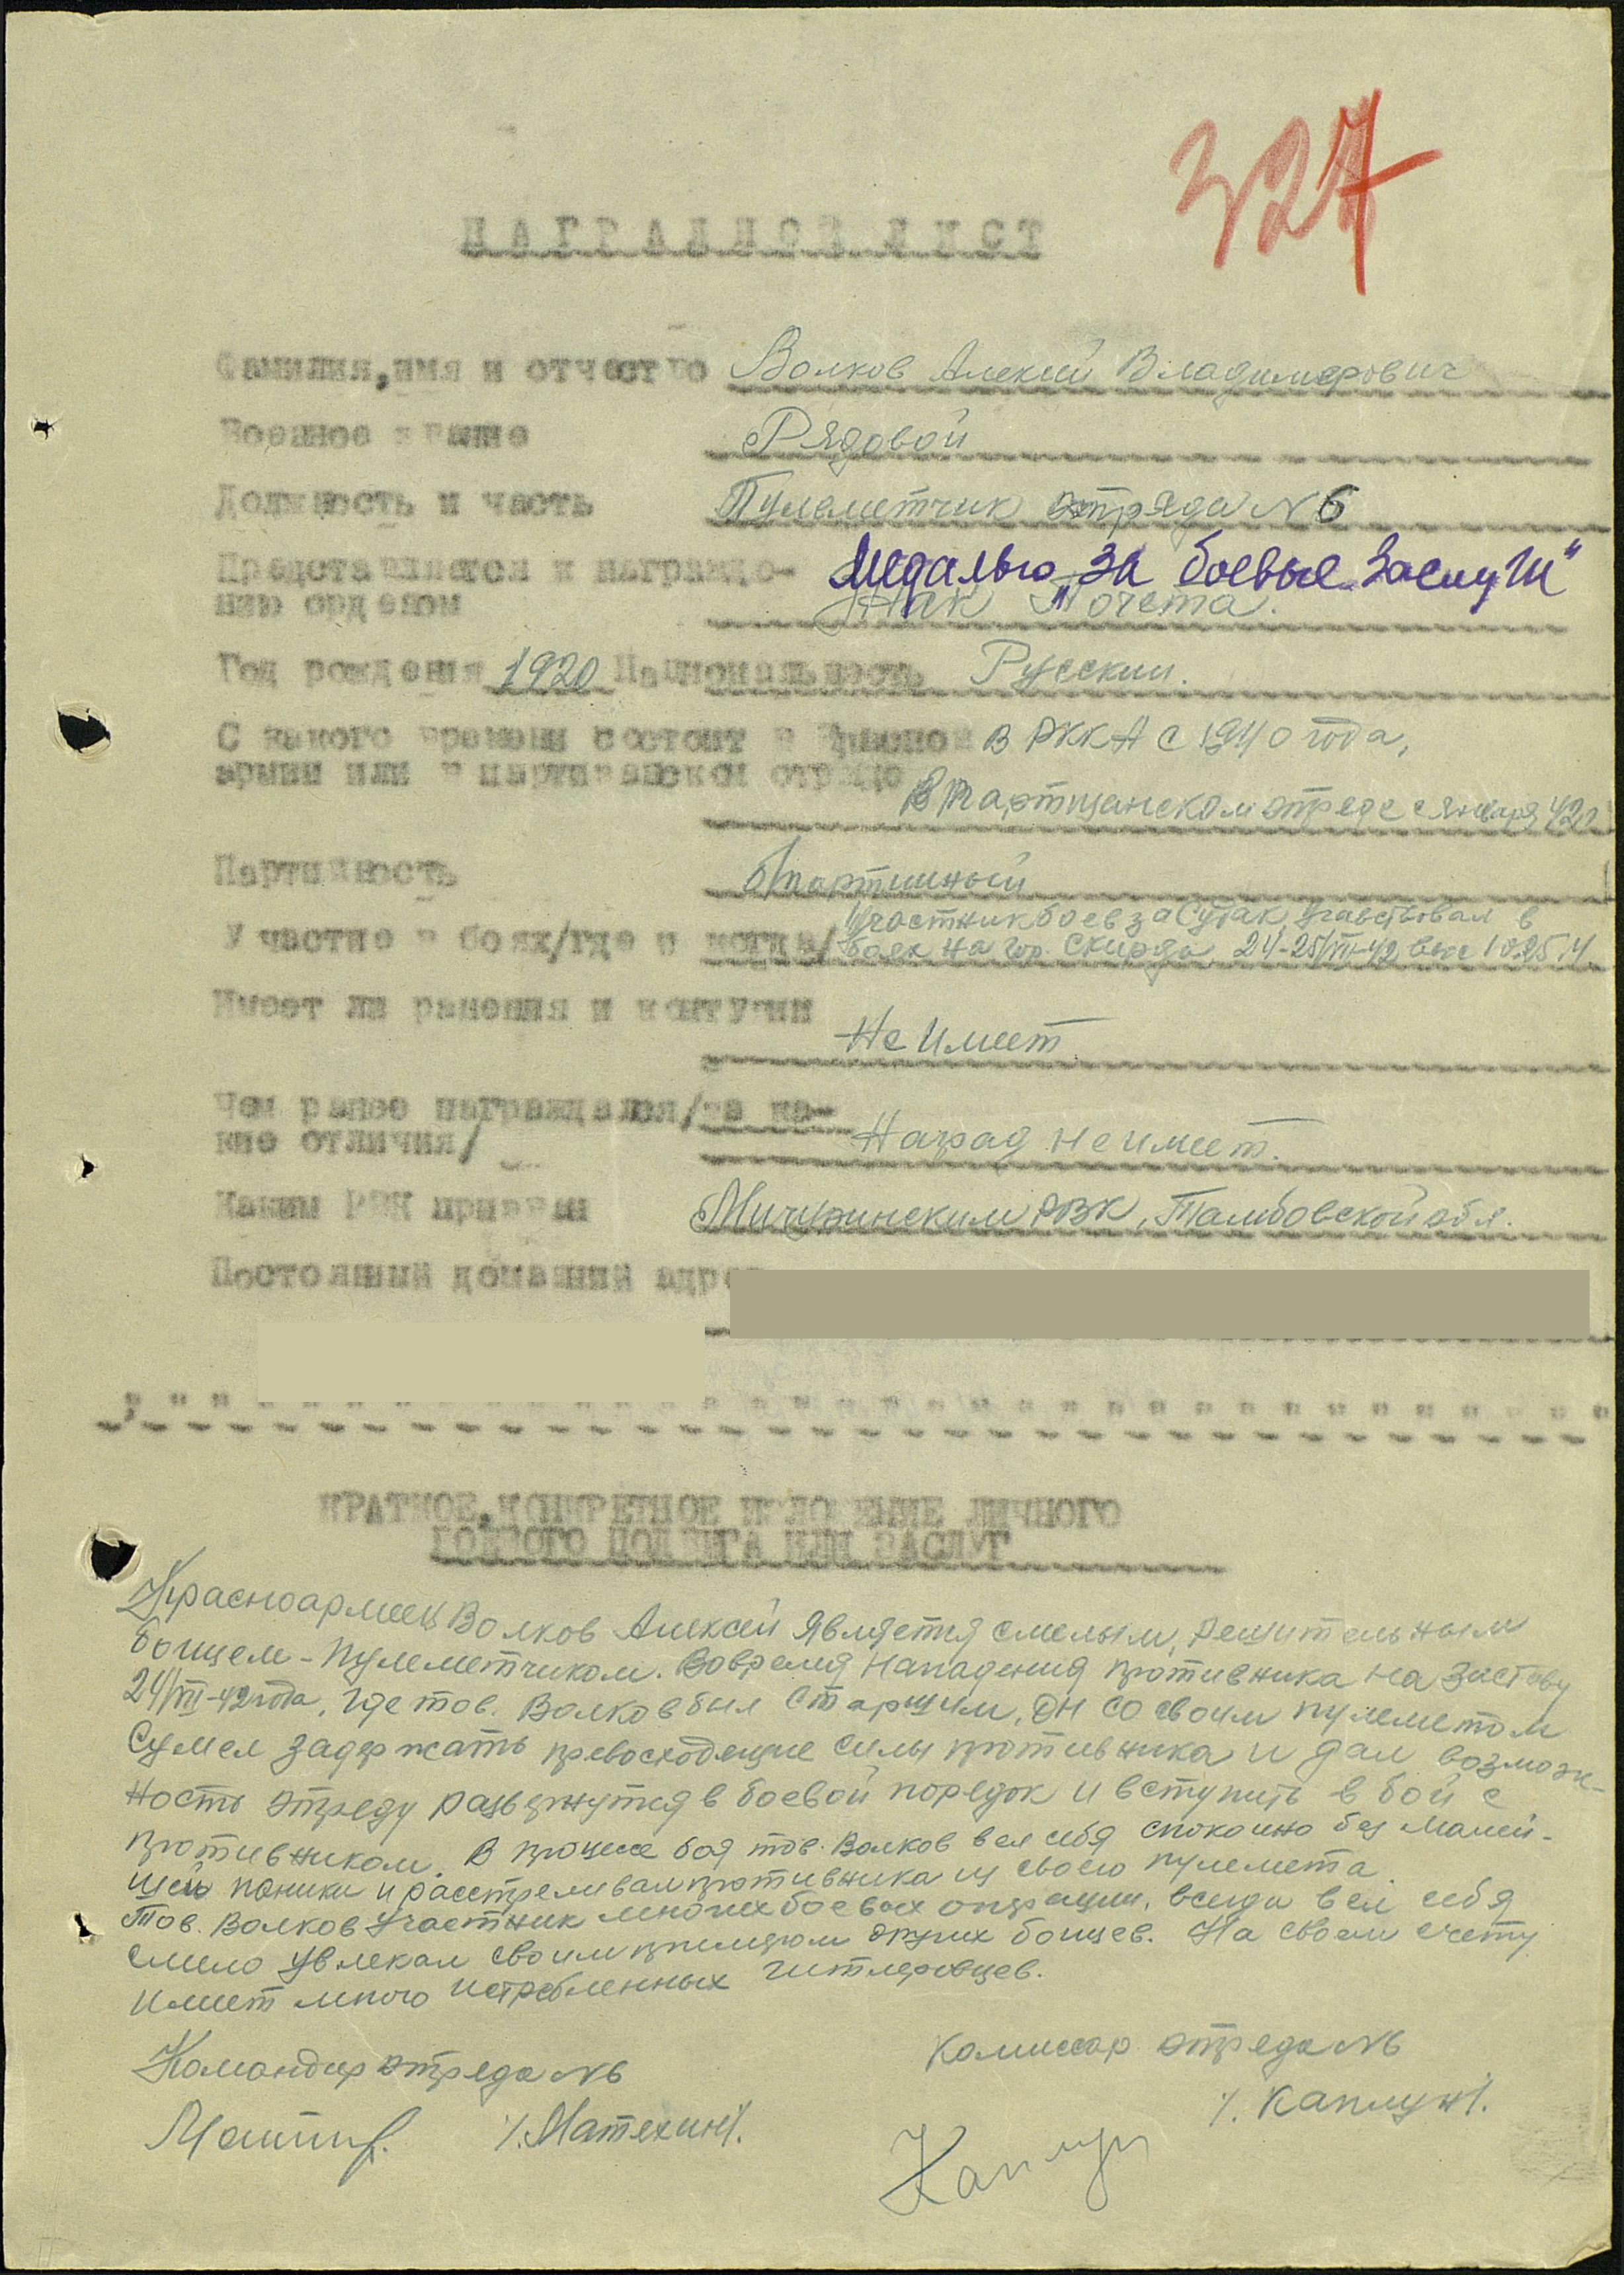 327
НАГРАДНОЙ ЛИСТ
Фамилия, имя и отчество Волков Алексей Владимирович
Военное звание Рядовой
Должность и часть Пулеметчик отряда №6
Представляется к награжде- Медалью „За боевые заслуги"
нию орденом Знак Почета.
Год рождения 1920 Национальность Русский.
С какого времени состоит в Красной в РККА с 1940 года,
армии или в партизанском отряде
В партизанском отряде с января 42г
Партийность б/партийный
Участник боев за Судак, участвовал в
Участие в боях/где и когда/ боях на гор. Скирда 24-25/VII-42, выс 1025,4.
Имеет ли ранения и контузии
Не имеет
Чем ранее награждался/за ка-
кие отличия/ Наград не имеет.
Каким РВК призван Мичуринским РВК, Тамбовской обл.
Постоянный домашний адрес
КРАТКОЕ, КОНКРЕТНОЕ ИЗЛОЖЕНИЕ ЛИЧНОГО
БОЕВОГО ПОДВИГА ИЛИ ЗАСЛУГ
Красноармеец Волков Алексей является смелым, решительным
бойцем-пулеметчиком. Вовремя нападения противника на заставу
24/VII-42 года, где тов. Волков был старшим, он со своим пулеметом
сумел задержать превосходящие силы противника и дал возмож-
ность отряду развернутся в боевой порядок и вступить в бой с
противником. В процесе боя тов. Волков вел себя спокойно без малей-
шей паники и расстреливал противника из своего пулемета.
Тов. Волков участник многих боевых операций, всюду вел себя
смело увлекал своим примером других бойцев. На своем счету
имеет много истребленных гитлеровцев.
Командир отряда №6
Комиссар отряда №6
/. Матехин/.
/. Каплун/.
Каплун